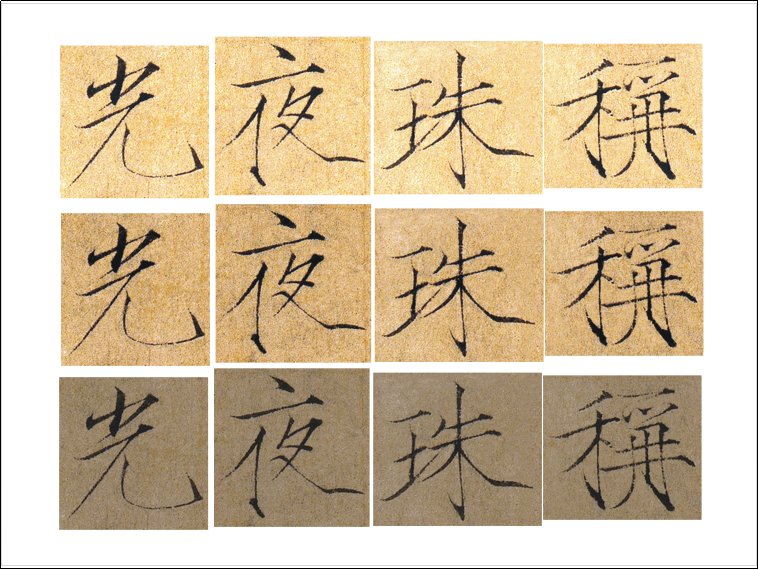 稱珠夜光
稱珠夜光
稱珠夜光